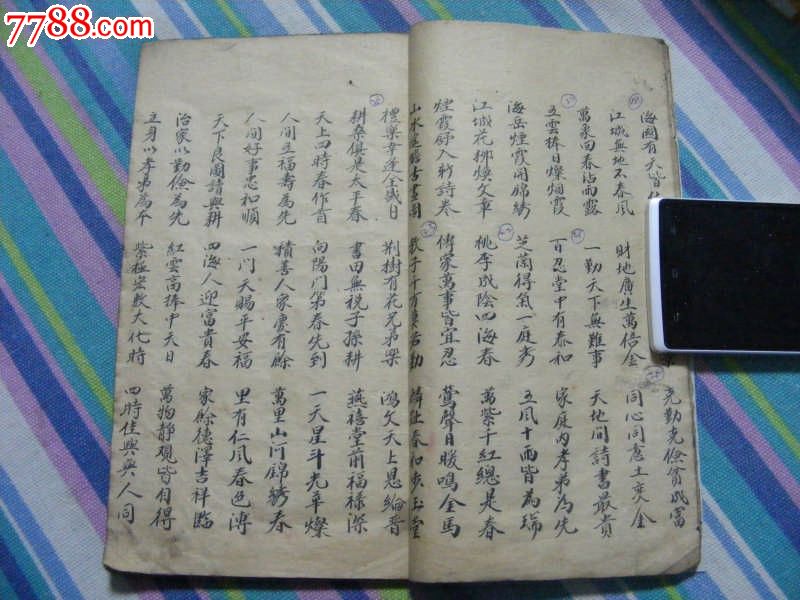 7788.com
海国有天皆
克勤克儉貧成富
江城無地不春風 財地廣生萬倍金 同心同意土变金
萬象回春沾雨露 一勤天下無難事 天地間詩書最貴
五雲捧日燦烟霞 百忍堂中有泰和 家庭内孝弟為先
海岳煙霞開錦綉 芝蘭得氣一庭秀 五風十雨皆為瑞
江城花柳煥文章 桃李成陰四海春 萬紫千紅總是春
煙霞歸入新詩卷 傳家萬事皆宜忍 鶯聲日暖鳴金馬
山水 古畫圖 教子千方莫若勤 麟趾春和步玉堂
禮樂幸逢全盛日 荆樹有花兄弟樂 鴻文天上恩綸晋
耕桑俱是太平春 書田無税子孫耕 燕禧堂前福禄深
天上四時春作首 向陽門第春先到 一天星斗光華燦
人間五福壽為先 積善人家慶有餘 萬里山河錦綉春
人間好事忠和順 一門天賜平安福 里有仁風春色溥
天下良圖讀與耕 四海人迎富貴春 家餘德澤吉祥臨
治家以勤儉為先 紅雲高捧中天日 萬物静觀皆自得
立身以孝弟為本 紫極宏敷大化時 四時佳興與人同